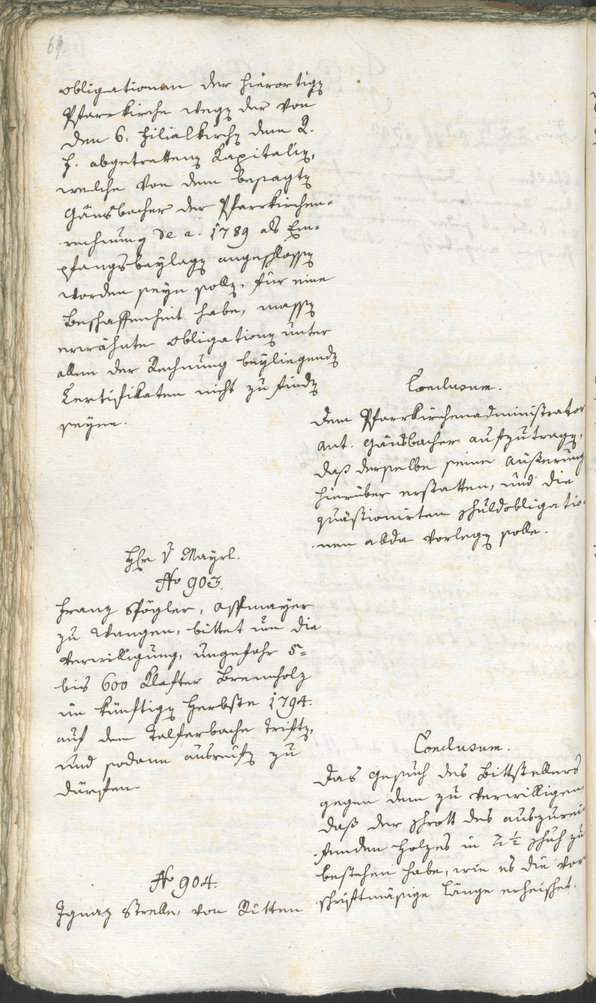 69.
Obligationen der hierortigen
Pfarrkirche wegen der von
den 6. Filialkirchen dem K.
F. abgetrettenen Kapitalien,
welche von dem besagten
Gänsbacher der Pfarrkirchen-
rechnung de a. 1789 als Em-
pfangsbeylagen angeschlossen
worden seyn sollen, für eine
Beschaffenheit habe, massen
erwähnte Obligationen unter
allen der Rechnung beyliegenden
Certifikaten nicht zu finden
seyen.
Conclusum.
Dem Pfarrkirchenadministrator
Ant. Gänsbacher aufzutragen,
daß derselbe seine Äußerung
hierüber erstatten, und die
quästionirten Schuldobligatio-
nen allda vorlegen solle.
Hr. v Mayrl.
No 903.
Franz Pögler, Assmayer
zu Wangen, bittet um die
Verwilligung, ungefähr 5-
bis 600 Klafter Brennholz
im künftigen Herbste 1794.
auf dem Talferbache triften,
und sodann ausrechen zu
dürfen
Conclusum.
Das Gesuch des Bittstellers
gegen dem zu verwilligen,
daß der Schrott des auszurei-
fenden Holzes in 2 ½ Schuh zu
bestehen habe, wie es die vor-
schriftmäßige Länge erheischet.
No 904.
Ignaz Strelle, von Ritten